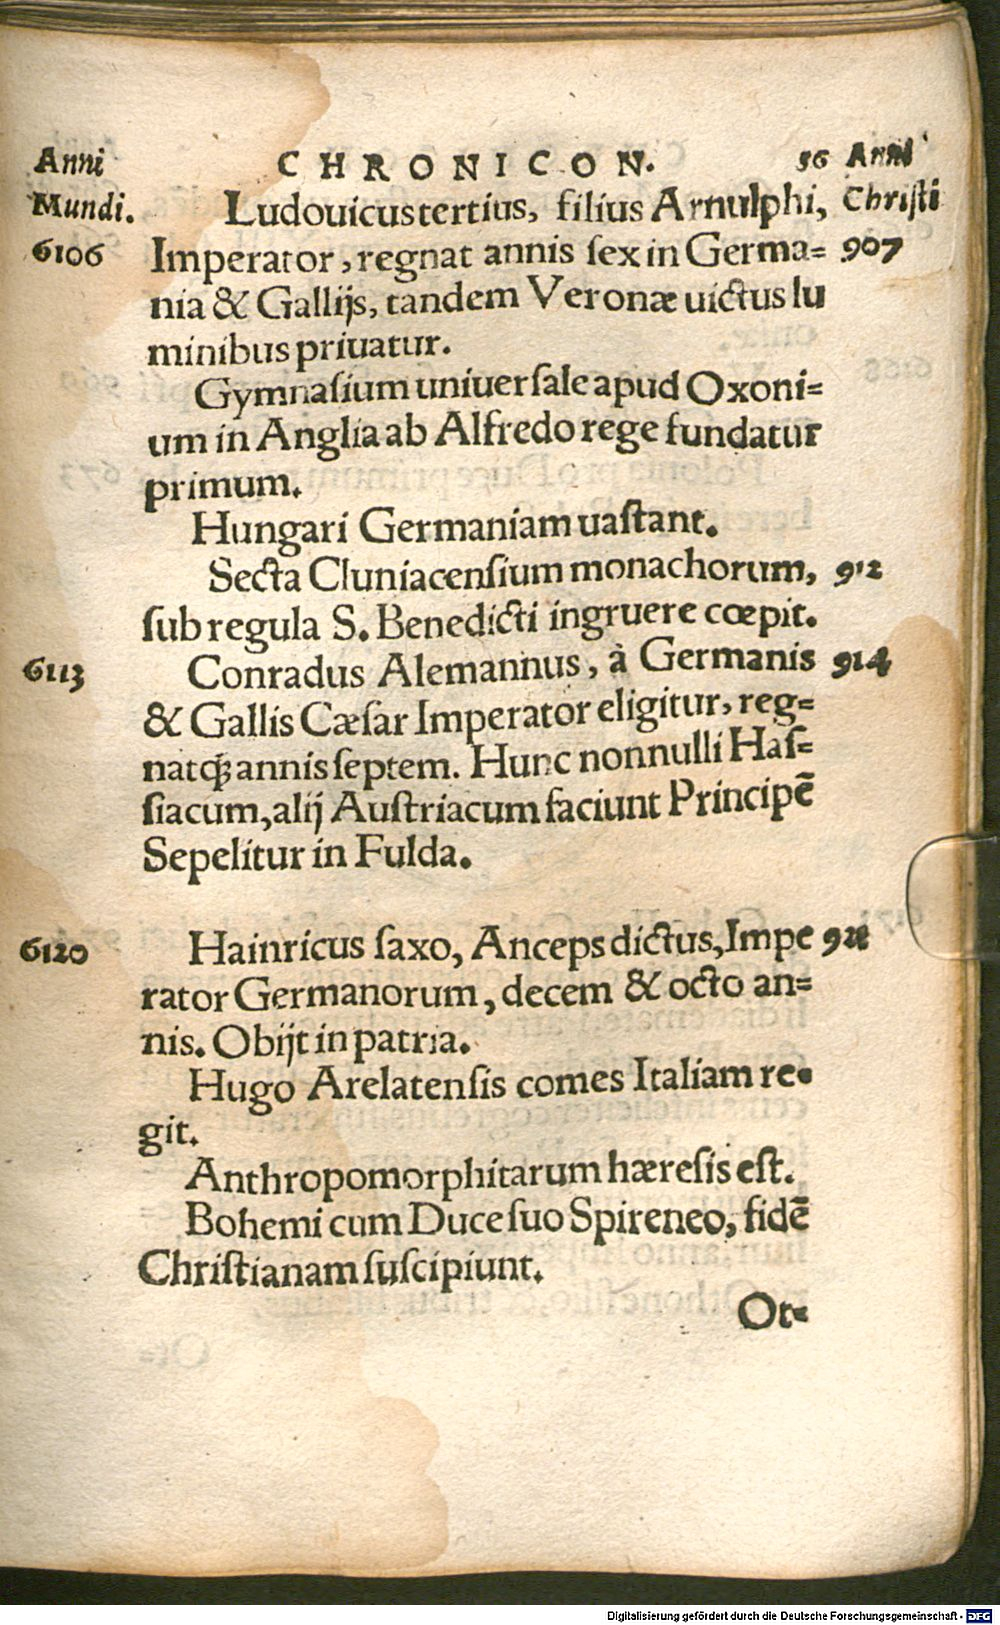 Anni CHRONICON. 56 Anni
Mundi. Ludouicus tertius, filius Arnulphi, Christi
6106 Imperator, regnat annis ſex in Germa= 907
nia & Gallijs, tandem Veronæ uictus lu
minibus priuatur.
Gymnaſium uniuerſale apud Oxoni=
um in Anglia ab Alfredo rege fundatur
primum.
Hungari Germaniam uaſtant.
Secta Cluniacenſium monachorum, 912
ſub regula S. Benedicti ingruere cœpit.
6113 Conradus Alemannus, à Germanis 914
& Gallis Cæſar Imperator eligitur, reg=
natq́; annis ſeptem. Hunc nonnulli Haſ=
ſiacum, alij Auſtriacum faciunt Principē
Sepelitur in Fulda.
6120 Hainricus ſaxo, Anceps dictus, Impe 921
rator Germanorum, decem & octo an=
nis. Obijt in patria.
Hugo Arelatenſis comes Italiam re=
git.
Anthropomorphitarum hæreſis eſt.
Bohemi cum Duce ſuo Spireneo, fidē
Chriſtianam ſuſcipiunt.
Ot=
Digitalisierung gefördert durch die Deutsche Forschungsgemeinschaft - DFG